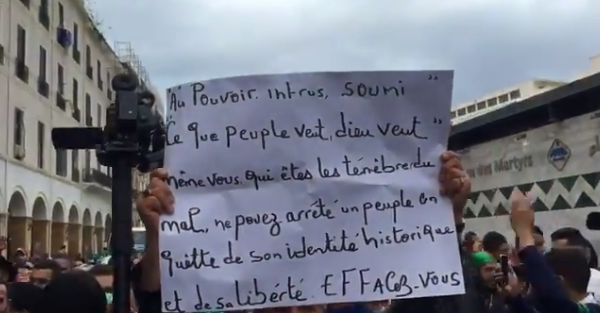 "Au Pouvoir. intrus, soumi"
"Ce que peuple veut, dieu veut"
même vous. qui êtes les ténèbre du
mal, ne pouvez arrêté un peuple en
quette de son identité historique
et de sa libérté. EFFACEZ-VOUS
des Martyrs